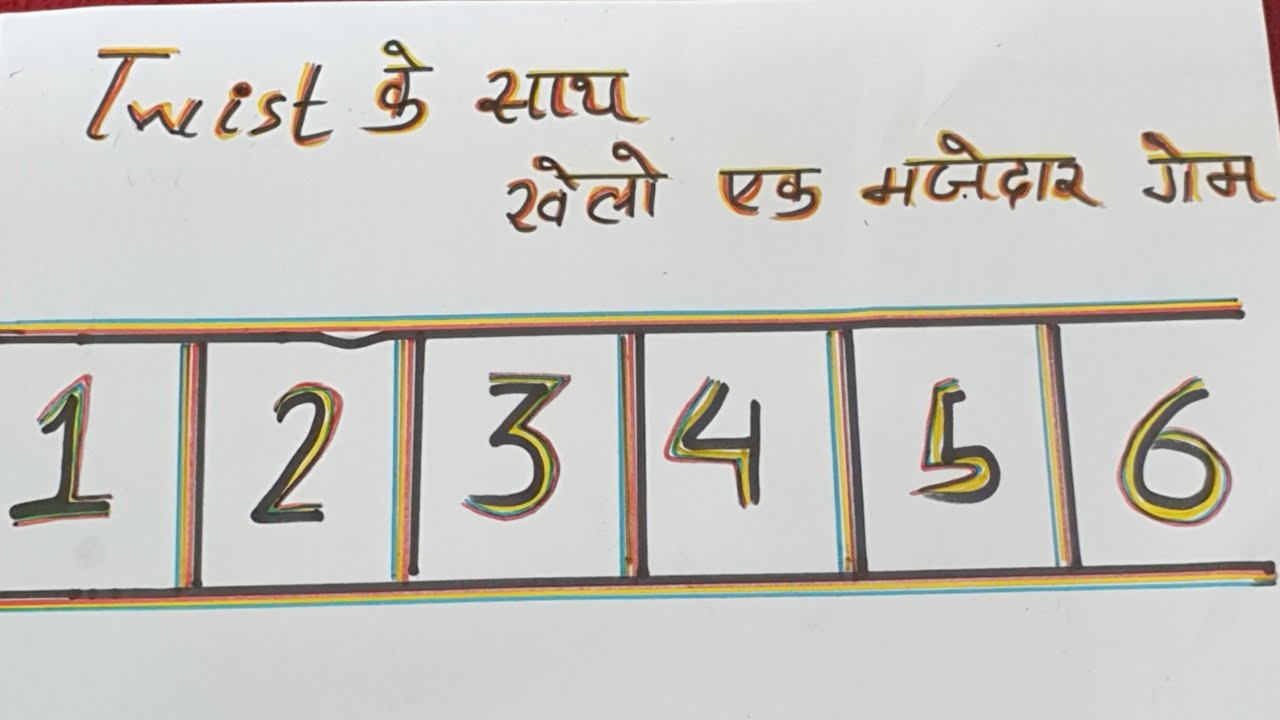 Twist के साथ
खेलो एक मज़ेदार गेम
1 2 3 4 5 6